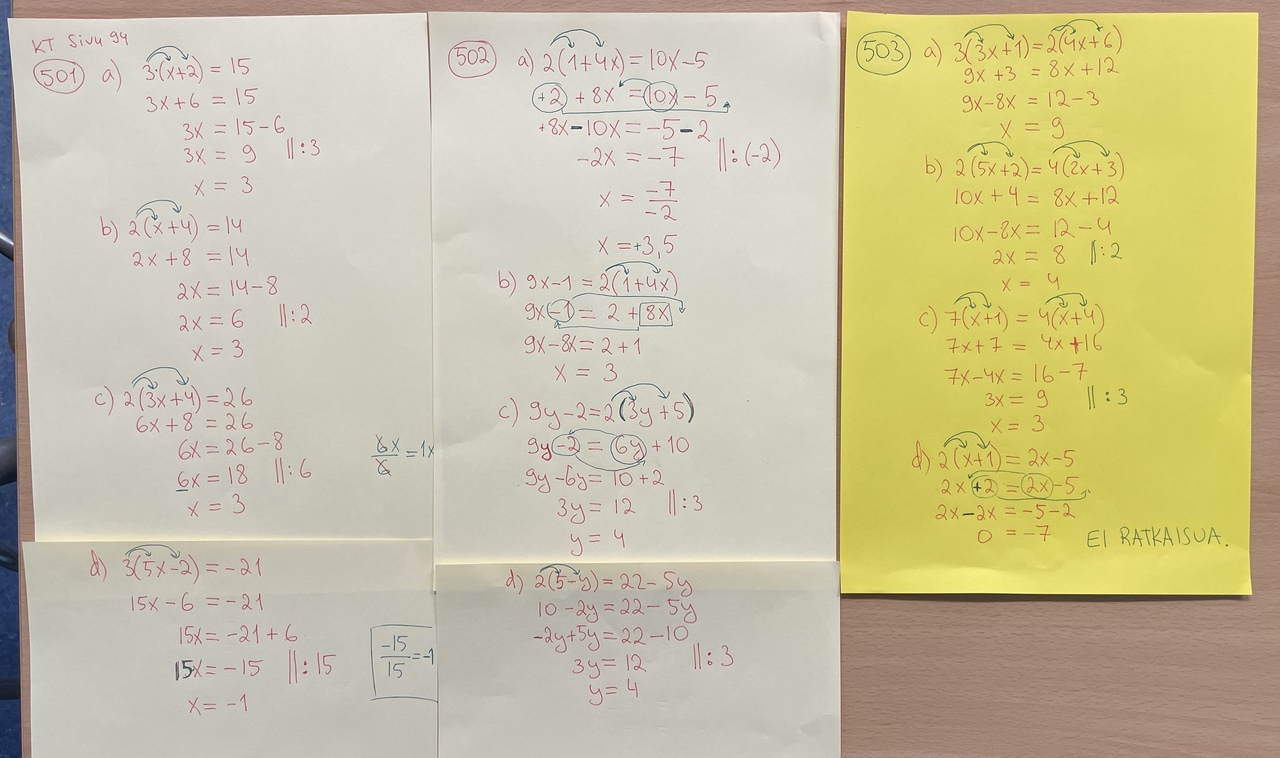 KT Sivu 94
501 a) 3·(x+2) = 15
3x+6 = 15
3x = 15-6
3x = 9 ||:3
x = 3
b) 2(x+4) = 14
2x+8 = 14
2x = 14-8
2x = 6 ||:2
x = 3
c) 2(3x+4) = 26
6x+8 = 26
6x = 26-8
6x = 18 ||:6
x = 3
6x/6 = 1x
d) 3(5x-2) = -21
15x-6 = -21
15x = -21+6
15x = -15 ||:15
x = -1
-15/15 = -1
502 a) 2(1+4x) = 10x-5
+2 +8x = 10x - 5
+8x-10x = -5-2
-2x = -7 ||:(-2)
x = -7/-2
x = +3,5
b) 9x-1 = 2(1+4x)
9x-1 = 2+8x
9x-8x = 2+1
x = 3
c) 9y-2 = 2(3y+5)
9y-2 = 6y+10
9y-6y = 10+2
3y = 12 ||:3
y = 4
d) 2(5-y) = 22-5y
10-2y = 22-5y
-2y+5y = 22-10
3y = 12 ||:3
y = 4
503 a) 3(3x+1) = 2(4x+6)
9x+3 = 8x+12
9x-8x = 12-3
x = 9
b) 2(5x+2) = 4(2x+3)
10x+4 = 8x+12
10x-8x = 12-4
2x = 8 ||:2
x = 4
c) 7(x+1) = 4(x+4)
7x+7 = 4x+16
7x-4x = 16-7
3x = 9 ||:3
x = 3
d) 2(x+1) = 2x-5
2x+2 = 2x-5
2x-2x = -5-2
0 = -7 EI RATKAISUA.